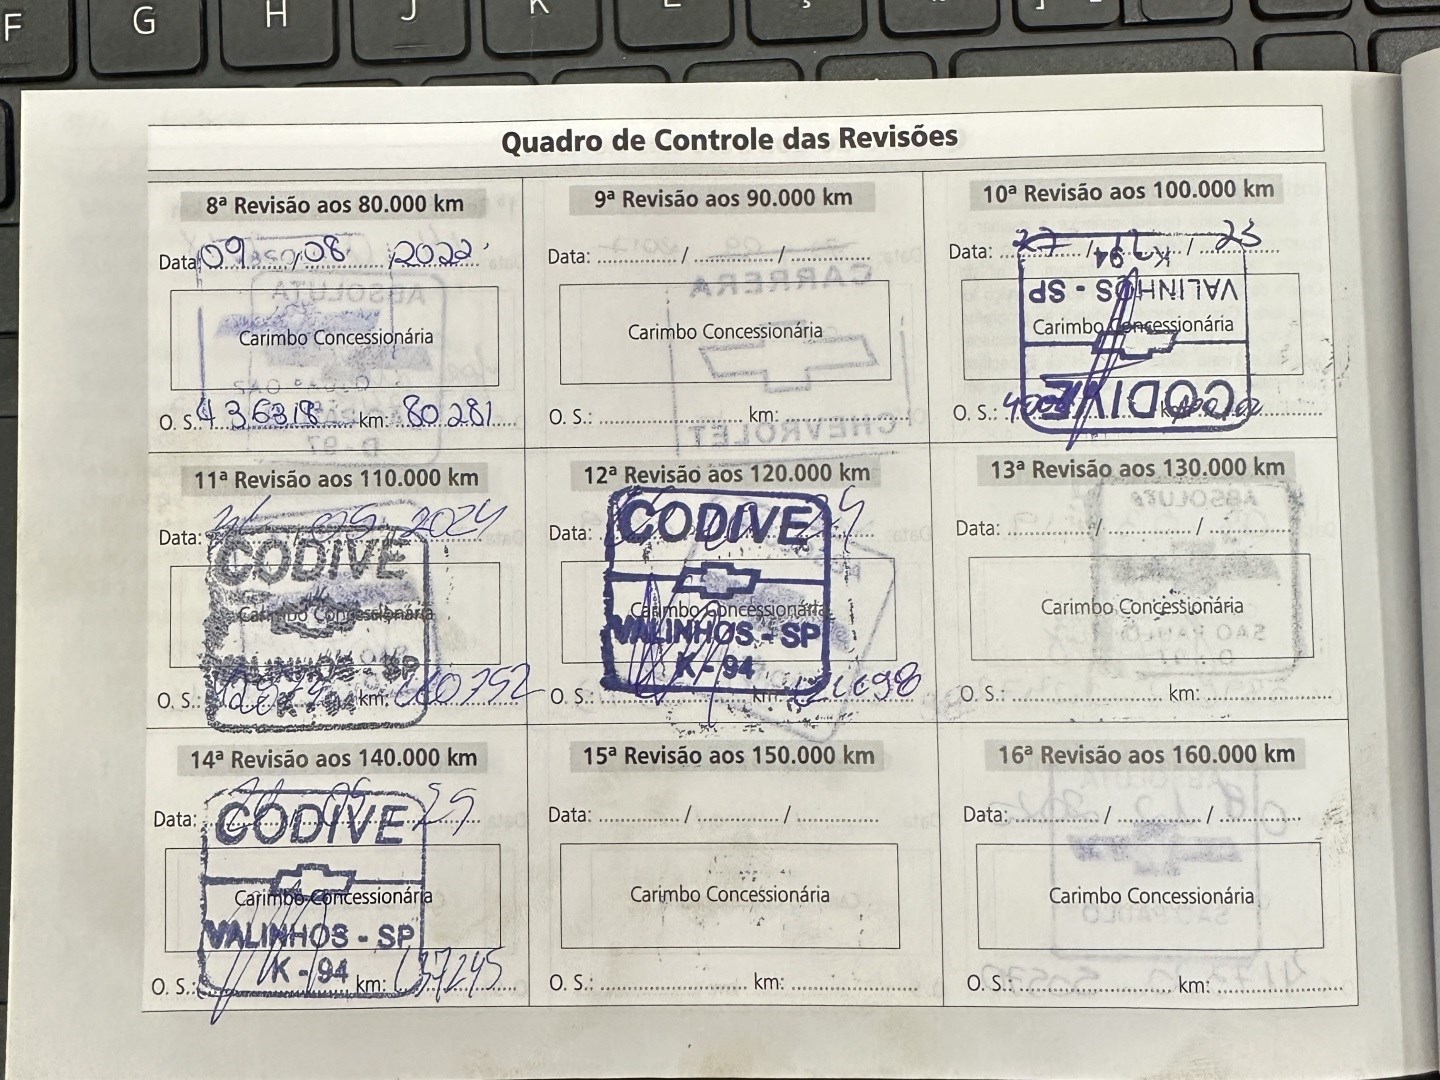 F G H J K L Ç
Quadro de Controle das Revisões
8ª Revisão aos 80.000 km
Data: 09 / 08 / 2022
Carimbo Concessionária
O. S.: 436318 km: 80281
9ª Revisão aos 90.000 km
Data: / /
Carimbo Concessionária
O. S.: km:
10ª Revisão aos 100.000 km
Data: / / 23
Carimbo Concessionária
CODIVE
VALINHOS - SP
K - 94
O. S.:
11ª Revisão aos 110.000 km
Data: 09 2024
CODIVE
Carimbo Concessionária
VALINHOS - SP
K - 94
O. S.: km:
12ª Revisão aos 120.000 km
Data: 24
CODIVE
Carimbo Concessionária
VALINHOS - SP
K - 94
O. S.: km: 121698
13ª Revisão aos 130.000 km
Data: / /
Carimbo Concessionária
O. S.: km:
14ª Revisão aos 140.000 km
Data: 25
CODIVE
Carimbo Concessionária
VALINHOS - SP
K - 94
O. S.: km: 137245
15ª Revisão aos 150.000 km
Data: / /
Carimbo Concessionária
O. S.: km:
16ª Revisão aos 160.000 km
Data: / /
Carimbo Concessionária
O. S.: km: